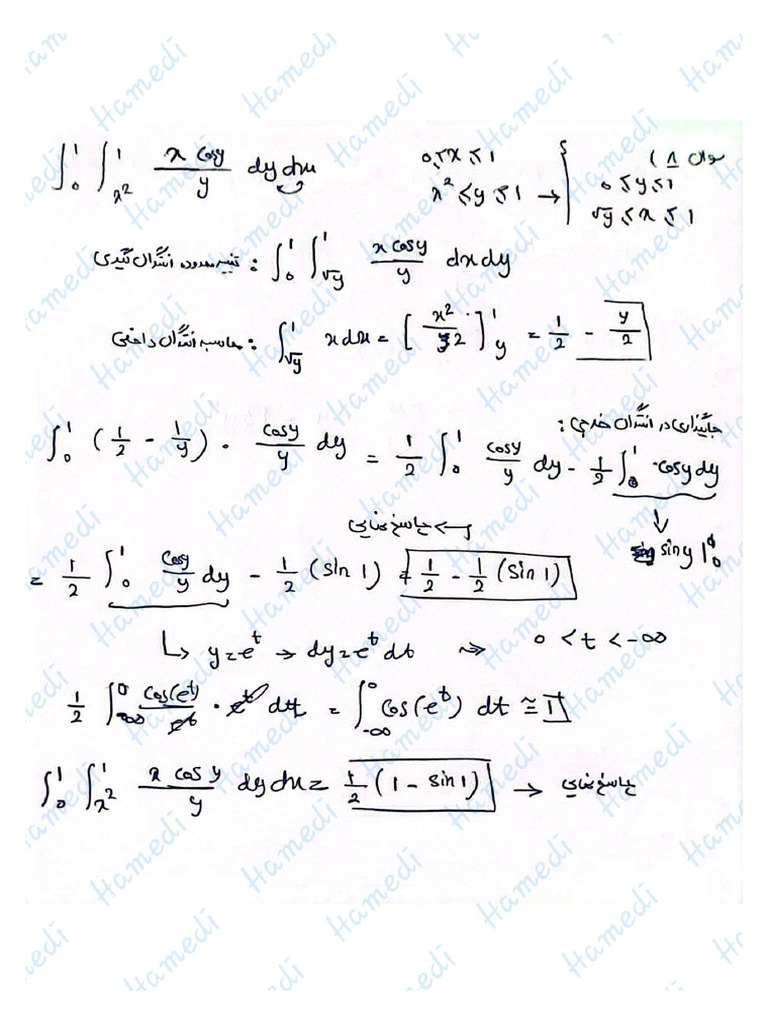 سوال ۸)
∫₀¹ ∫ₓ²¹ (x cosy)/y dy dx    0≤x≤1    0≤y≤1
x² ≤ y ≤ 1 → √y ≤ x ≤ 1
تغییر محدوده انتگرال گیری : ∫₀¹ ∫_√y¹ (x cosy)/y dx dy
محاسبه انتگرال داخلی : ∫_√y¹ x dx = [x²/2]¹_y = 1/2 - y/2
جایگذاری در انتگرال خارجی :
∫₀¹ (1/2 - 1/y) · cosy/y dy = 1/2 ∫₀¹ cosy/y dy - 1/2 ∫₀¹ cosy dy
siny |₀
پاسخ نهایی
= 1/2 ∫₀¹ cosy/y dy - 1/2 (sin 1) = 1/2 - 1/2 (sin 1)
↳ y=eᵗ → dy=eᵗ dt ⇝ 0 < t < -∞
1/2 ∫_-∞⁰ cos(eᵗ)/eᵗ · eᵗ dt = ∫_-∞⁰ cos(eᵗ) dt ≅
∫₀¹ ∫ₓ²¹ (x cosy)/y dy dx = 1/2 (1 - sin 1) → پاسخ نهایی
Hamedi